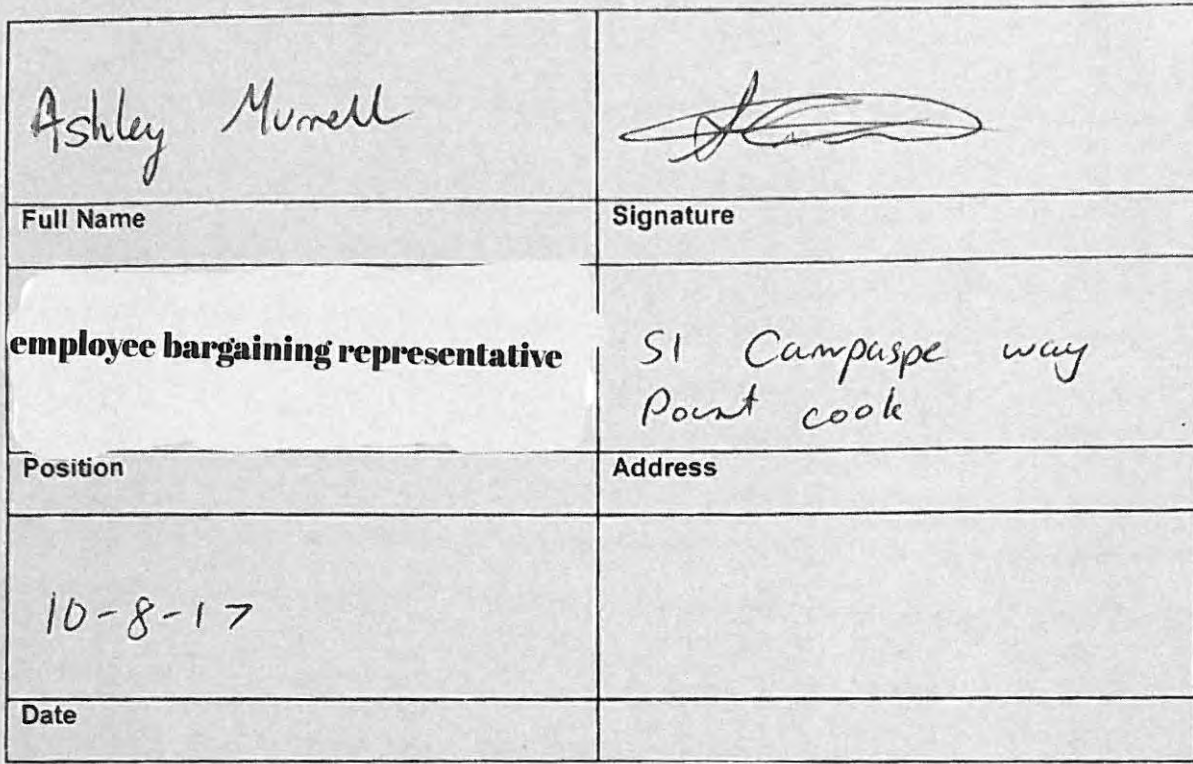 Ashley Murrell
Full Name
Signature
employee bargaining representative
51 Campaspe way
Point cook
Position
Address
10-8-17
Date